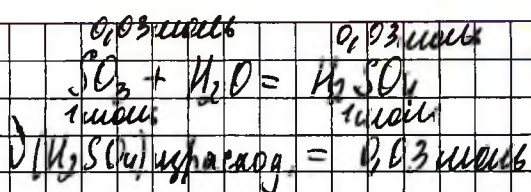 0,03 моль 0,03 моль
SO₃ + H₂O = H₂SO₄
1 моль 1 моль
ν(H₂SO₄) израсход. = 0,03 моль